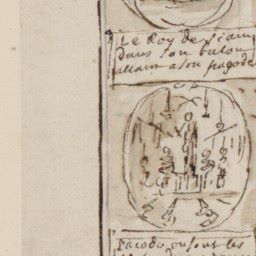 Le Roy de Siam
dans son balon
allant a son pagode
Pagode, ou sont les